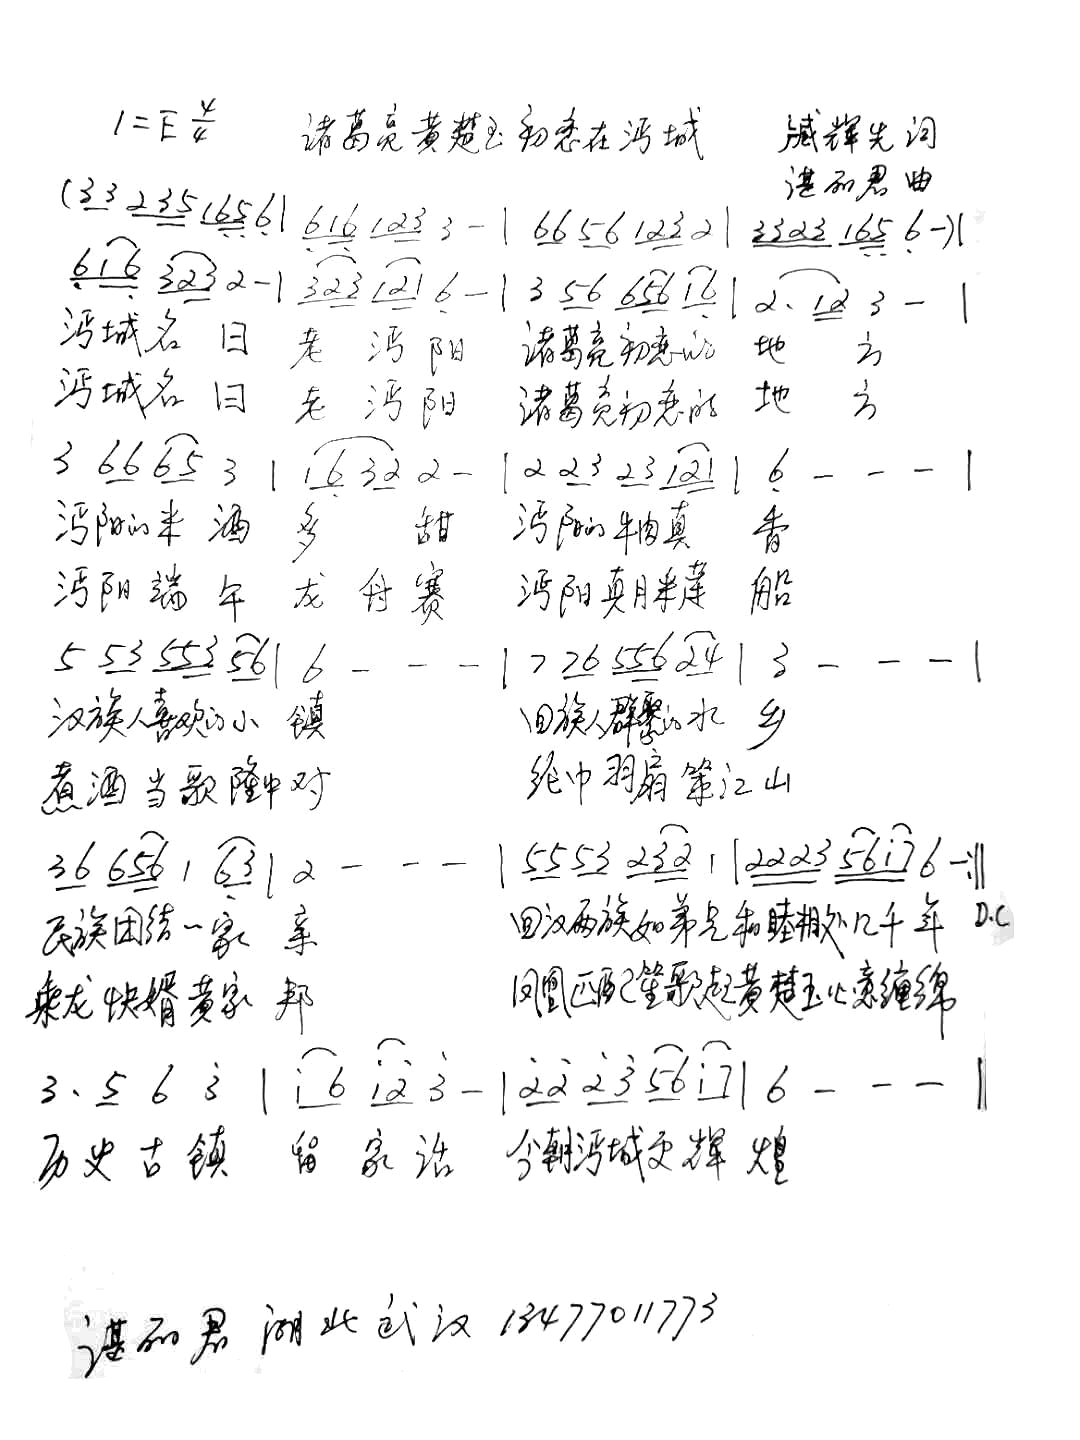 1=E 4/4 诸葛亮黄楚玉初恋在沔城 臧辉先词
谌丽君曲
(33 235 1656| 616 123 3 -| 66 56 123 2| 3323 165 6 -)|
616 323 2 -| 323 121 6 -| 3 56 656 16| 2· 12 3 - |
沔城名曰 老沔阳 诸葛亮初恋的 地方
沔城名曰 老沔阳 诸葛亮初恋的 地方
3 66 65 3 | 16 32 2 -| 2 23 23 121| 6 - - - |
沔阳的米酒 多甜 沔阳的牛肉真 香
沔阳端午 龙舟赛 沔阳真月米莲 船
5 53 553 56| 6 - - - | 7 76 556 24| 3 - - - |
汉族人喜欢的小 镇 回族人群聚的水 乡
煮酒当歌隆中对 纶巾羽扇策江山
36 656 1 63| 2 - - - | 5553 232 1 |2223 56i7 6 -:||
民族团结一家 亲 回汉两族如弟兄和睦相处几千年 D.C
乘龙快婿黄家 邦 凤凰匹配笙歌起黄楚玉心恋缠绵
3· 5 6 3 | i6 i2 3 -| 22 23 56 i7| 6 - - - ||
历史古镇 留家话 今朝沔城更辉 煌
谌丽君 湖北武汉 13477011773